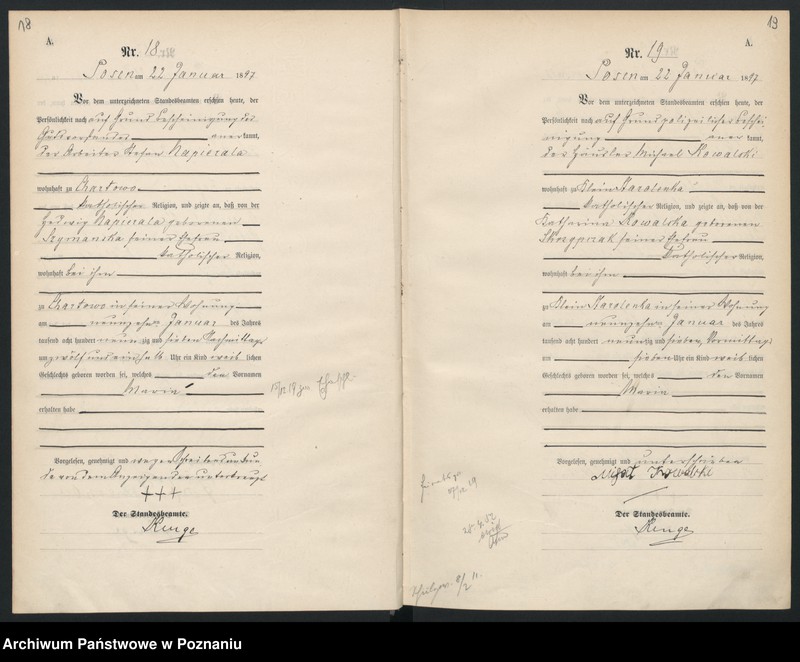 18
A.
Nr. 18.
Posen am 22 Januar 1897
Vor dem unterzeichneten Standesbeamten erschien heute, der
Persönlichkeit nach auf Grund Bescheinigung des
Gutsvorstandes anerkannt,
der Arbeiter Stefan Napierala
wohnhaft zu Chartowo
katholischer Religion, und zeigte an, daß von der
Hedwig Napierala geborenen
Szymanska seiner Ehefrau
katholischer Religion,
wohnhaft bei ihm
zu Chartowo in seiner Wohnung
am neunzehn Januar des Jahres
tausend acht hundert neunzig und sieben Nachmittags
um zwölf und Uhr ein Kind weiblichen
Geschlechts geboren worden sei, welches den Vornamen
Maria
erhalten habe
Vorgelesen, genehmigt und wegen Schreibensunkun
de von dem Anzeigenden unterkreuzt
+++
Der Standesbeamte.
Runge
19
A.
Nr. 19
Posen am 22 Januar 1897
Vor dem unterzeichneten Standesbeamten erschien heute, der
Persönlichkeit nach auf Grund polizeilicher Beschei
nigung anerkannt,
der Häusler Michael Kowalski
wohnhaft zu Klein Starolenka
katholischer Religion, und zeigte an, daß von der
Katharina Kowalska geborenen
seiner Ehefrau
katholischer Religion,
wohnhaft bei ihm
zu Klein Starolenka in seiner Wohnung
am neunzehn Januar des Jahres
tausend acht hundert neunzig und sieben Vormittags
um sieben Uhr ein Kind weiblichen
Geschlechts geboren worden sei, welches den Vornamen
Maria
erhalten habe
Vorgelesen, genehmigt und unterschrieben
Der Standesbeamte.
Runge
Archiwum Państwowe w Poznaniu